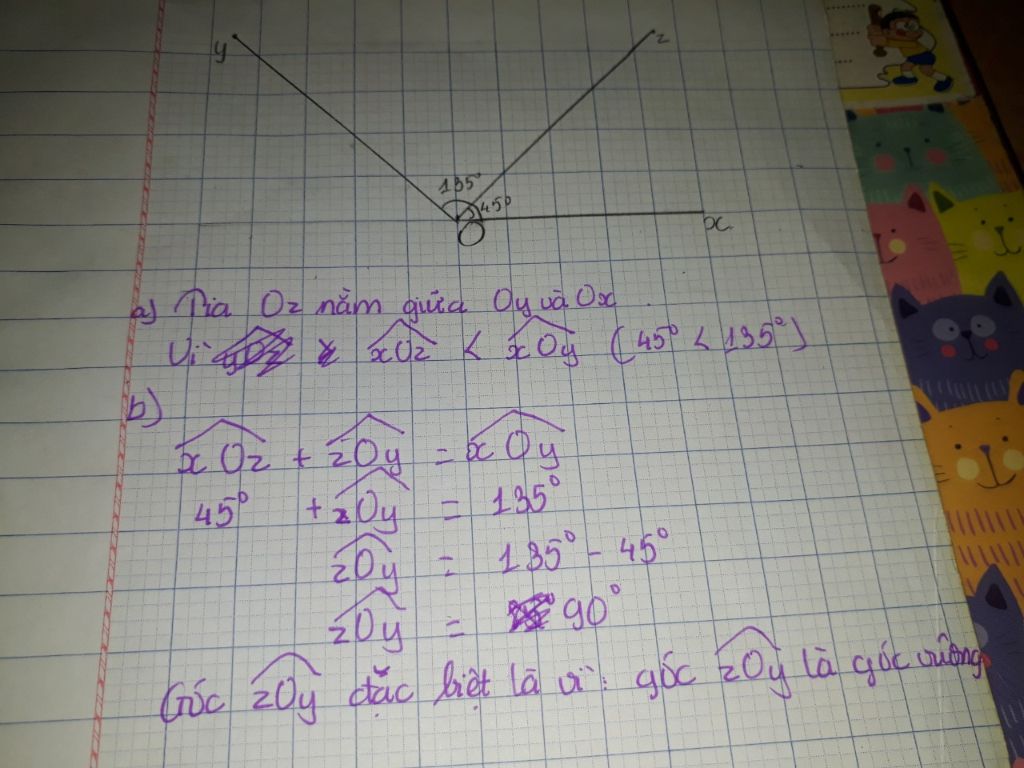 y
z
135°
45°
O
x
a) Tia Oz nằm giữa Oy và Ox.
Vì xOz < xOy (45° < 135°)
b)
xOz + zOy = xOy
45° + zOy = 135°
zOy = 135° - 45°
zOy = 90°
Góc zOy đặc biệt là vì: góc zOy là góc vuông